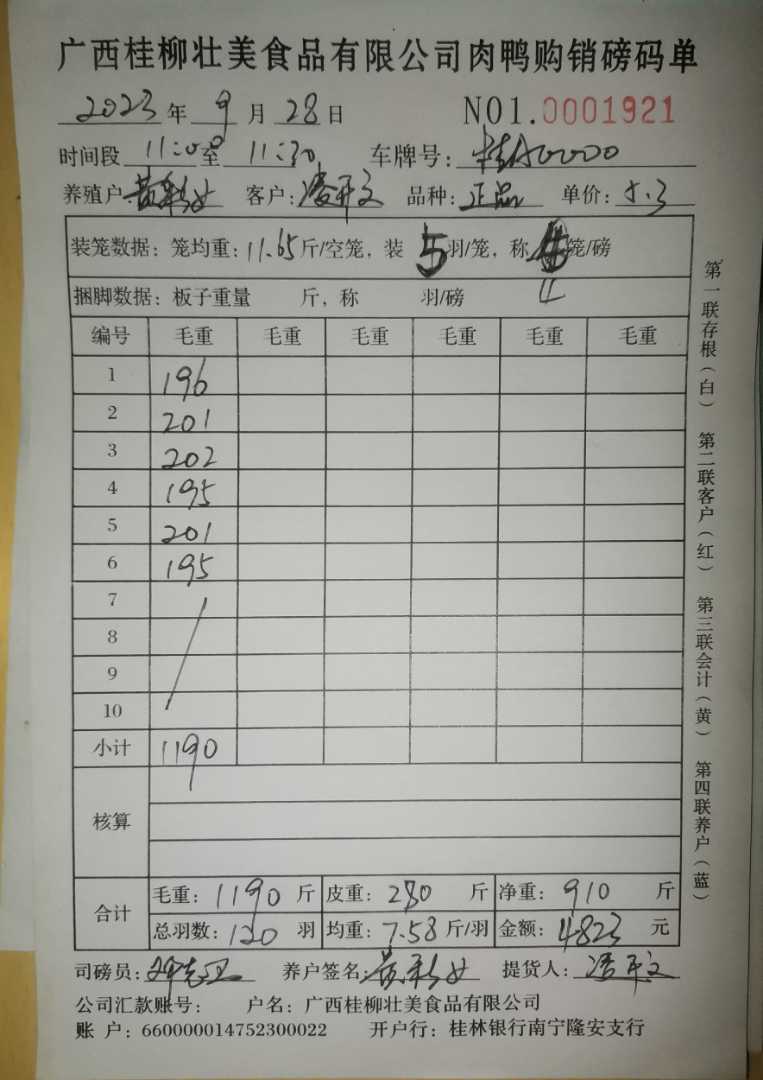 广西桂柳壮美食品有限公司肉鸭购销磅码单
2023年9月28日 NO1.0001921
时间段 11:00至 11:30 车牌号：桂A0000
养殖户 客户： 品种：正品 单价：5.3
装笼数据：笼均重：11.65斤/空笼，装5羽/笼，称4笼/磅
捆脚数据：板子重量 斤，称 羽/磅 4
编号 毛重 毛重 毛重 毛重 毛重 毛重
1 196
2 201
3 202
4 195
5 201
6 195
7
8
9
10
小计 1190
核算
合计 毛重：1190斤 皮重：280斤 净重：910斤
总羽数：120羽 均重：7.58斤/羽 金额：4823元
司磅员： 养户签名： 提货人：
公司汇款账号： 户名：广西桂柳壮美食品有限公司
账 户：660000014752300022 开户行：桂林银行南宁隆安支行
第一联存根（白） 第二联客户（红） 第三联会计（黄） 第四联养户（蓝）